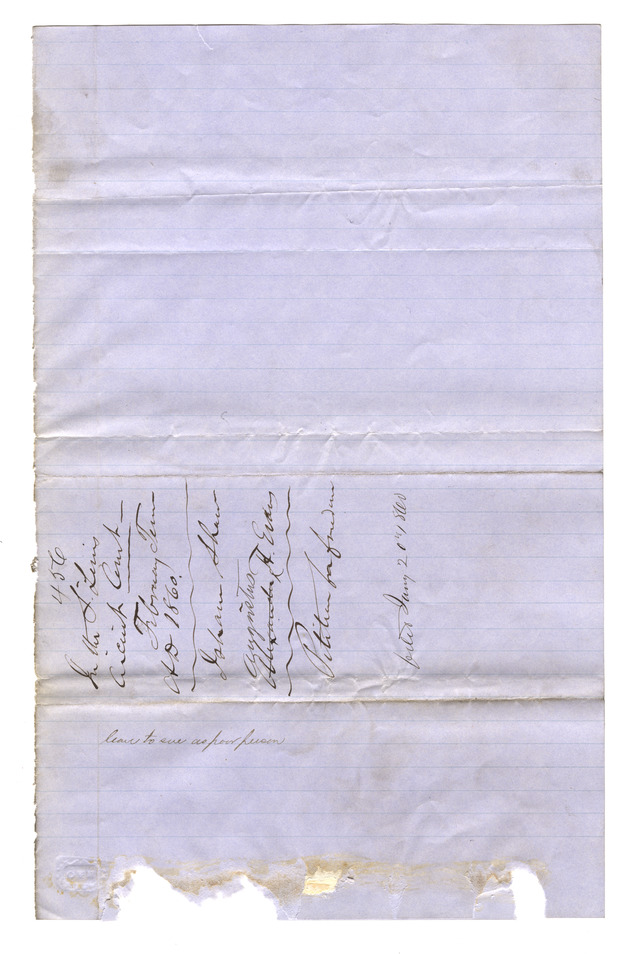 456
In the St Louis
Circuit Court
February Term
AD 1860.
vs
Augustus
A. Evans
Petition for freedom
filed Jany 20th 1860
leave to sue as poor person